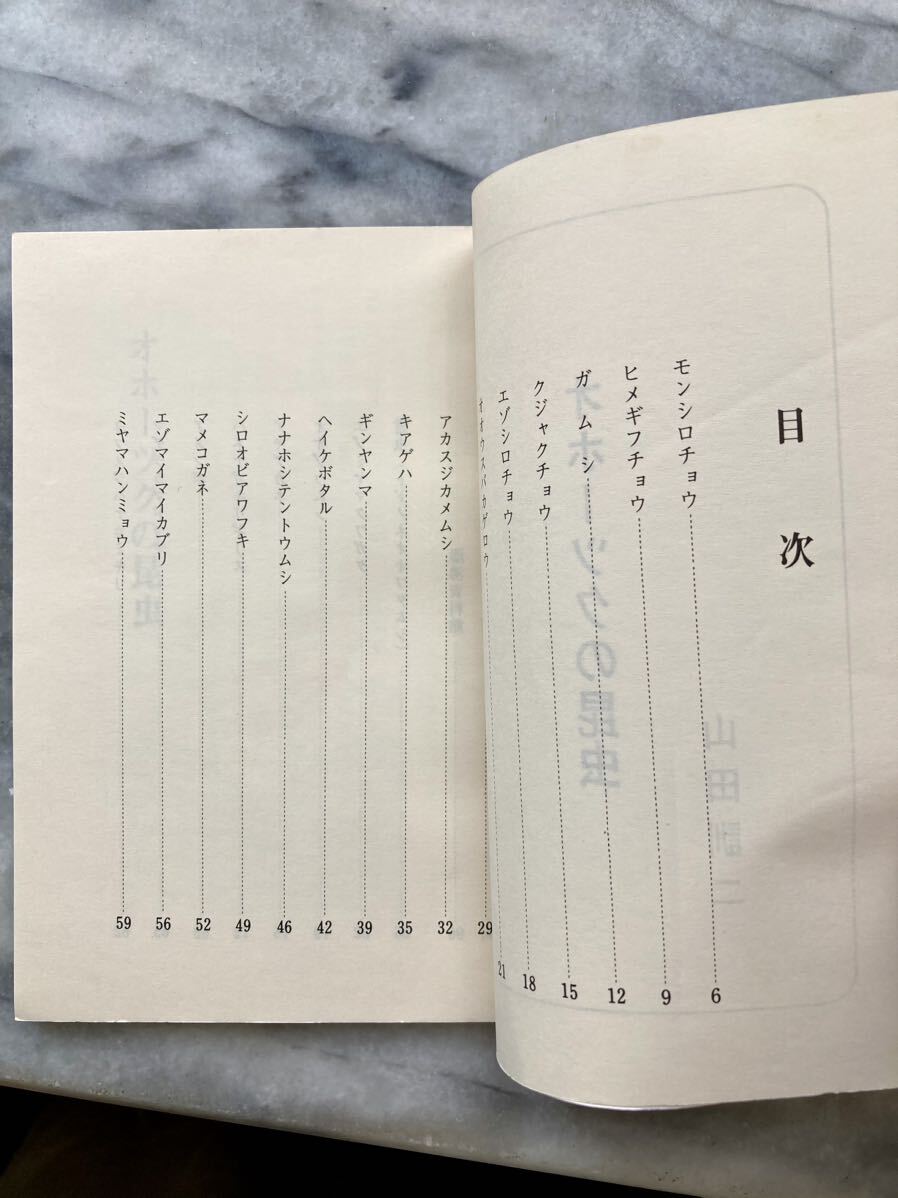 目次
モンシロチョウ 6
ヒメギフチョウ 9
ガムシ 12
クジャクチョウ 15
エゾシロチョウ 18
オオウスバカゲロウ 21
29
アカスジカメムシ 32
キアゲハ 35
ギンヤンマ 39
ヘイケボタル 42
ナナホシテントウムシ 46
シロオビアワフキ 49
マメコガネ 52
エゾマイマイカブリ 56
ミヤマハンミョウ 59